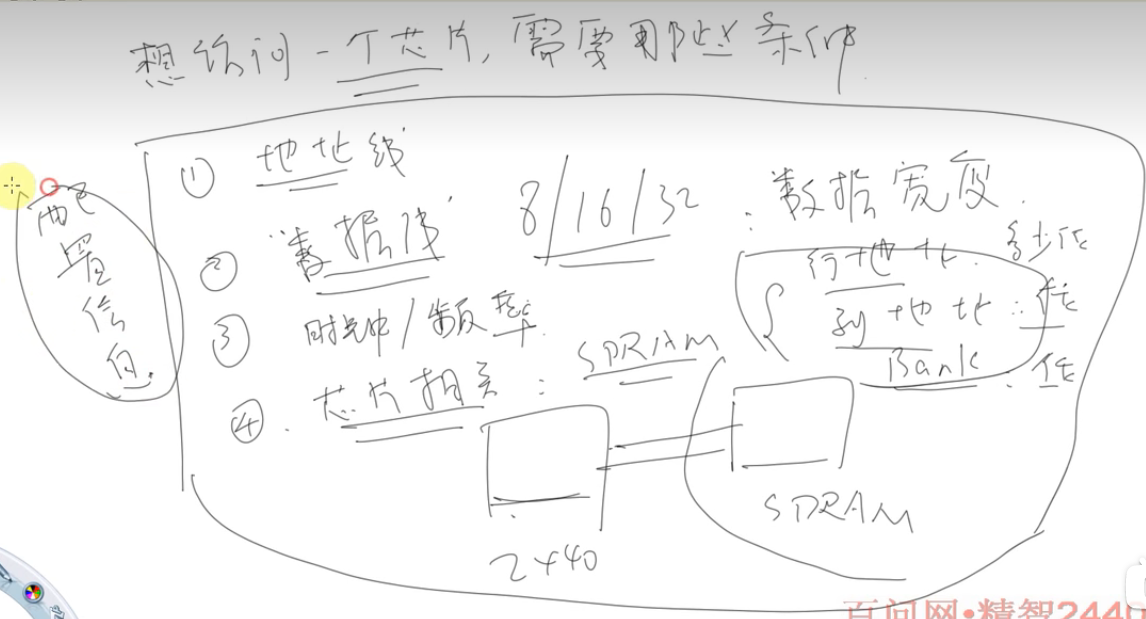 想访问一个芯片,需要那些条件.
① 地址线
② 数据线 8/16/32 :数据宽度.
③ 时钟/频率
④. 芯片相关: SDRAM
行地址. 多少位
列地址:位
Bank.位
配置信息.
2440
SDRAM
百问网•精智2440